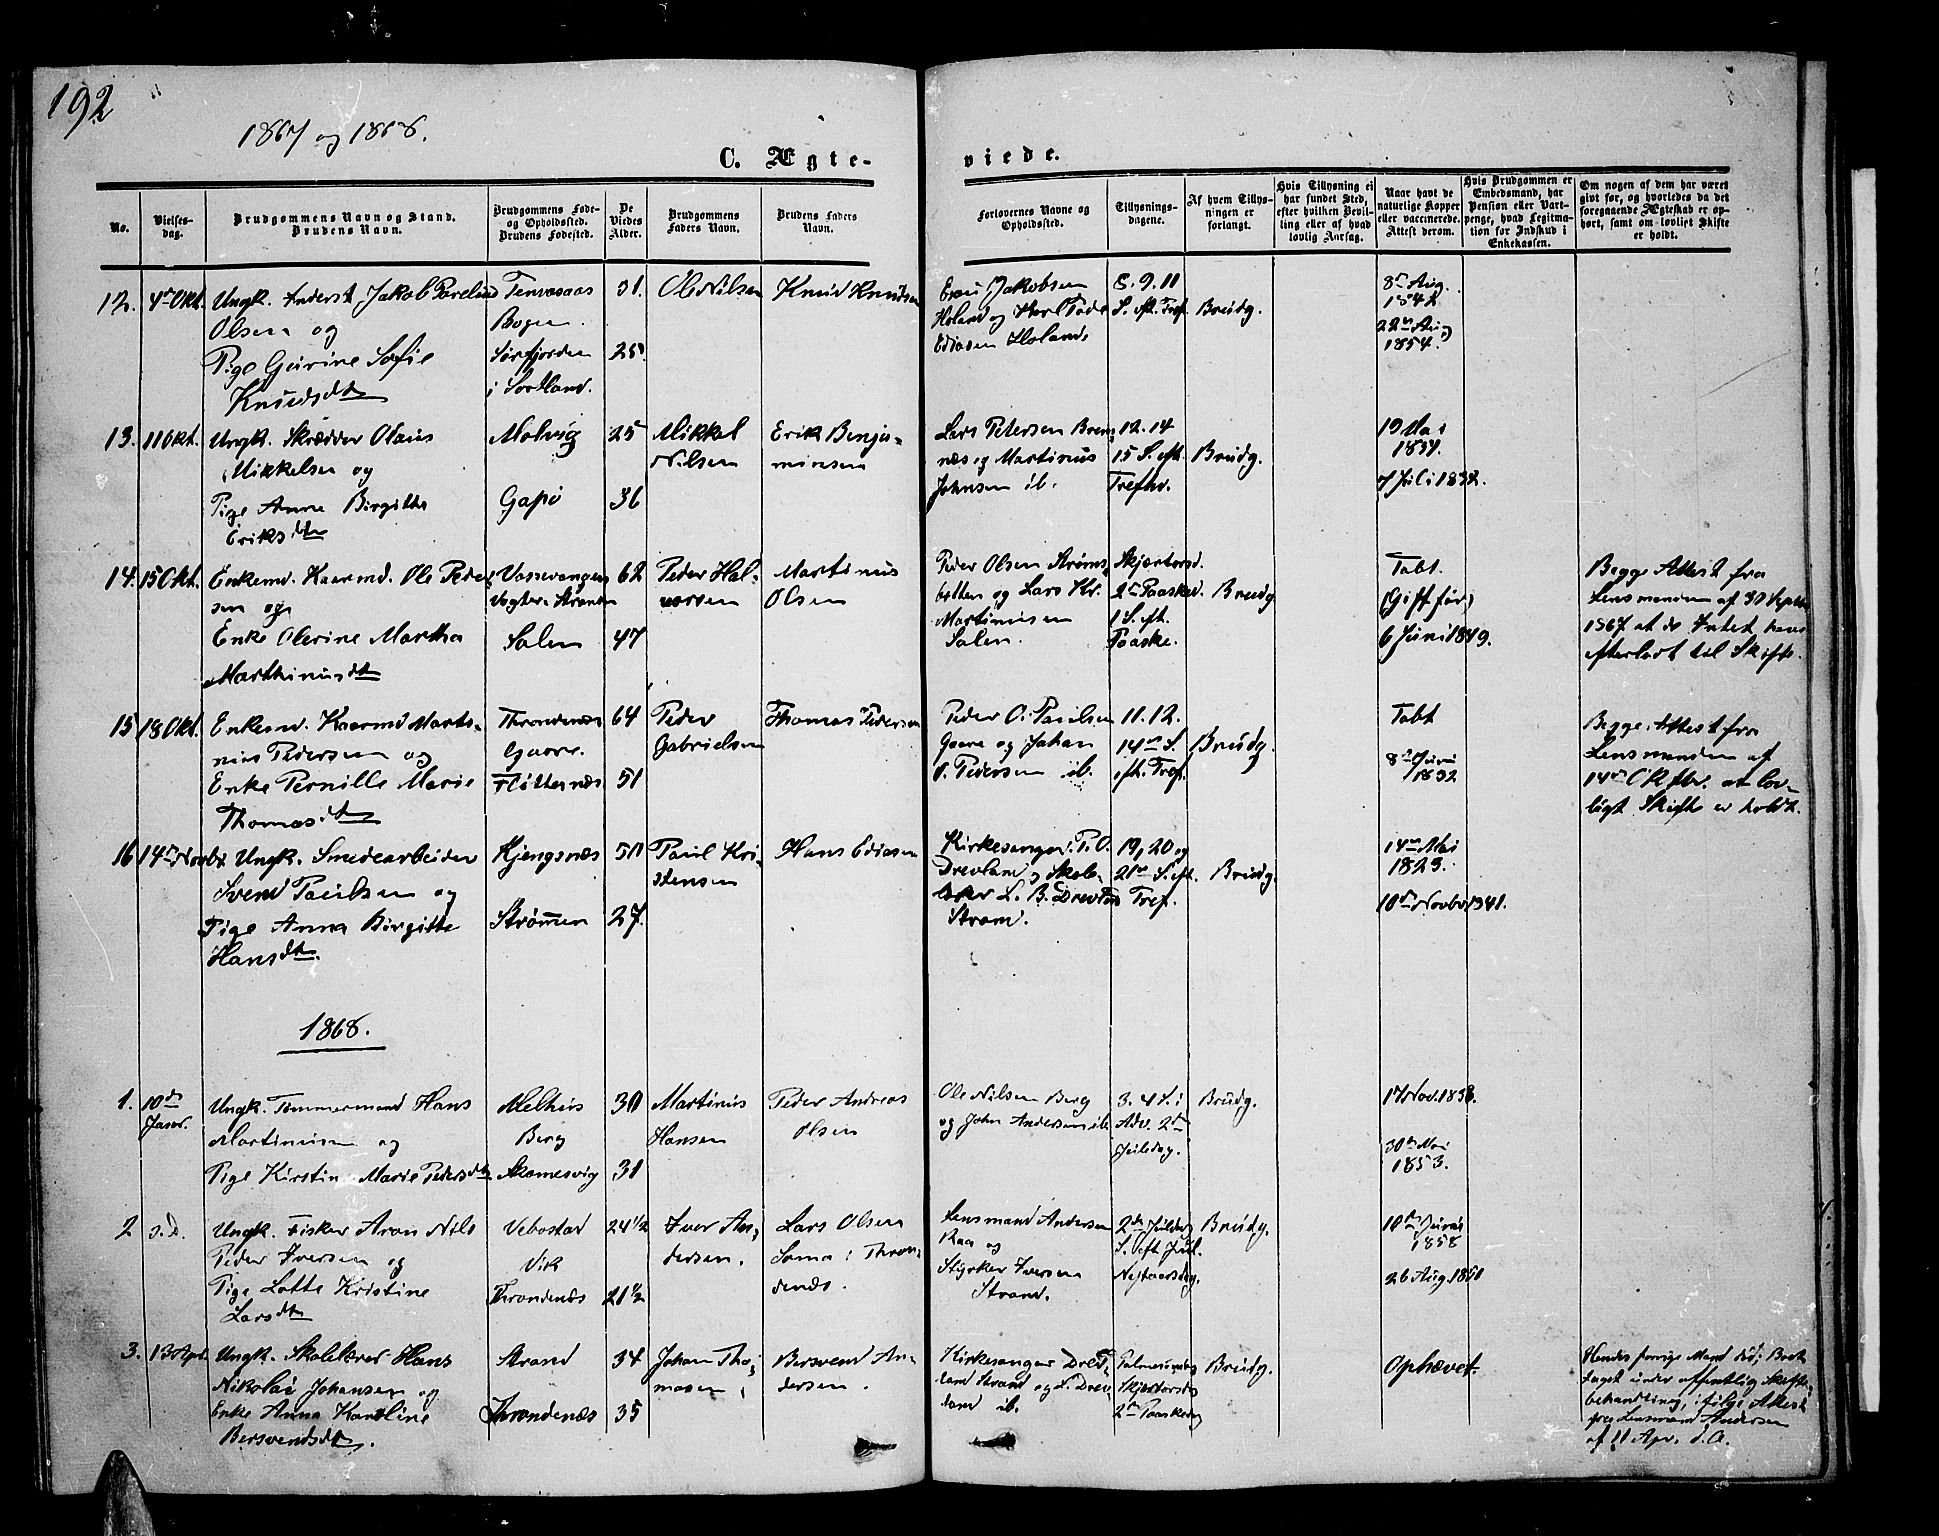 192
1867 og 1868.
C. Ægte-
viede.
No.
Vielses-
dag.
Brudgommens Navn og Stand.
Brudens Navn.
Brudgommens Føde-
og Opholdssted.
Brudens Fødested.
De
Viedes
Alder.
Brudgommens
Faders Navn.
Brudens Faders
Navn.
Forlovernes Navne og
Opholdssted.
Tillysnings-
dagene.
Af hvem Tillys-
ningen er
forlangt.
Hvis Tillysning ei
har fundet Sted,
efter hvilken Bevil-
ling eller af hvad
lovlig Aarsag.
Naar havt de
naturlige Kopper
eller vaccinerede.
Attest derom.
Hvis Brudgommen er
Embedsmand, har
Pension eller Vart-
penge, hvad Legitima-
tion for Indskud i
Enkekassen.
Om nogen af dem har været
gift før, og hvorledes da det
foregaaende Ægteskab er op-
hørt, samt om lovligt Skifte
er holdt.
12. 4de Okt. Ungk. Anderst Jakob Parelius
Olsen og
Pige Gurine Sofie
Knudsdtr
Tennesaas
Bogen.
Sørfjorden
i Sortland.
31.
25.
Ole Nilsen
Knud Knudsen
Jakobsen
Holand og
Ediasen Holand,
8. 9. 11
S. eft. Tref.
Brudg.
8de Aug.
1842
22de Aug
1854.
13. 11 Okt. Ungk. Skrædder Olaus
Mikkelsen og
Pige Anne Birgitha
Eriksdtr
Molvig
Gapø
25
36
Mikkel
Nilsen
Erik Benja-
minsen
Lars Petersen Brem-
næs og Martinus
Johnsen ib.
12. 14
15 S. eft.
Trefnd.
Brudg.
19 Mai
1834.
7 Juli 1832.
14. 15 Okt. Enkemd. Kaarmd. Ole Peder-
sen og
Enke Olerine Martha
Marthinusdtr
Vassevangen
Salen
62
47
Peder Hal-
vorsen
Martinus
Olsen
Peder Olsen Strøms-
botten og Lars Kr.
Martinusen
Salen.
Skjærtorsd.
2den Paasked.
1 S. eft.
Paaske.
Brudg
Tabt.
(Gift før)
6 Juni 1849.
Begge Attest fra
Lensmanden af 30 Septb
1867 at de Intet have
efterladt til Skifte.
15 18 Okt. Enkemd. Kaarmd Marti-
nus Pedersen og
Enke Pernille Marie
Thomasdtr
Throndenæs
Gaare.
Fløttenæs
64
51
Peder
Gabrielsen
Thomas Pedersen
Peder O. Paulsen
Gaare og Johan
P. Pedersen ib.
11. 12.
14de S.
eft. Tref.
Brudg.
Tabt
8de Juni
1832
Begge: Attest fra
Lensmanden af
14de Oktbr. at lov-
ligt Skifte er holdt.
16 14de Novbr Ungk. Smedearbeider
Svend Paulsen og
Pige Anna Birgitte
Hansdtr.
Kjengsnæs
Strømmen
50
27.
Paul Kri-
stensen
Hans Ediasen
Kirkesanger P. O.
Drevland og Skole-
lærer L. B. Drevland
Strand.
19, 20 og
21de S. eft.
Tref.
Brudg.
14de Mai
1823.
10de Novbr 1841.
1868.
1. 10de
Janr.
Ungk. Tømmermand Hans
Martinusen og
Pige Kirstin Marie Pedersdtr
Melhus
Berg
Skomesvig
30
31
Martinus
Hansen
Peder Andreas
Olsen
Ole Nilsen Berg
og John Andersen ib.
3. 4 S. i
Adv. 2den
Juledag.
Brudg.
17 Nov. 1838.
30de Mai
1853.
2 s. D. Ungk. Fisker Aron Nils
Peder Iversen og
Pige Lotte Kristine
Larsdtr
Vebostad
Vik
Throndenæs
24 1/2
21 1/2
Iver An-
dersen.
Lars Olsen
Sama i Thron-
denæs.
Lensmand Andersen
Raa og
Styrker Iversen
Strand.
2den Juledag
S. eft. Jul.
Nytaarsdag.
Brudg.
10de Juni
1858
26 Aug. 1860
3. 13 Apr. Ungk. Skolelærer Hans
Nikolai Johansen og
Enke Anna Karoline
Bersvendsdtr.
Strand
Throndenæs
34
35
Johan Tho-
masen,
Bersvend An-
dersen.
Kirkesanger Drev-
land Strand og L. Drev-
land ib.
Palmesøndag
Skjærtorsdag
2den Paaskedag
Brudg.
Ophævet.
Hendes forrige Mand død; Boet
taget under offentlig Skifte-
behandling, ifølge Attest
fra Lensmand Andersen
af 11 Apr. d. A.